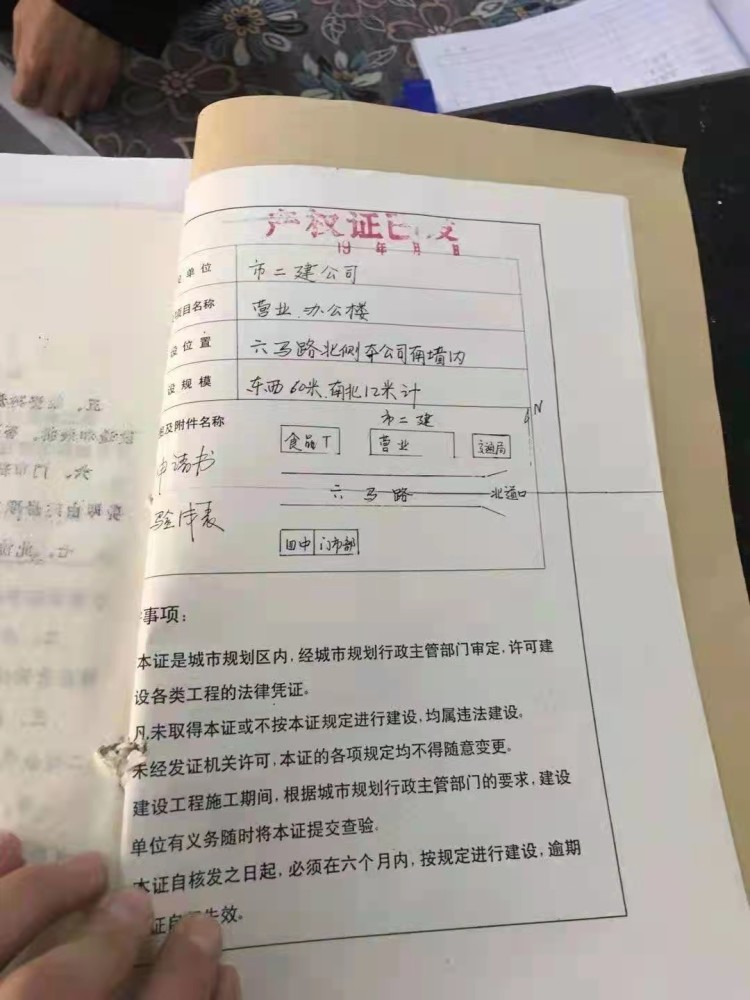 产权证已发
19 年 月 日
单位 市二建公司
项目名称 营业、办公楼
设位置 六马路北侧本公司南墙内
设规模 东西60米、南北12米计
及附件名称
申请书
验审表
市二建
N
食品厂 营业 交通局
六马路 北道口
田中 门市部
事项：
本证是城市规划区内，经城市规划行政主管部门审定，许可建
设各类工程的法律凭证。
凡未取得本证或不按本证规定进行建设，均属违法建设。
未经发证机关许可，本证的各项规定均不得随意变更。
建设工程施工期间，根据城市规划行政主管部门的要求，建设
单位有义务随时将本证提交查验。
本证自核发之日起，必须在六个月内，按规定进行建设，逾期
证自 失效。